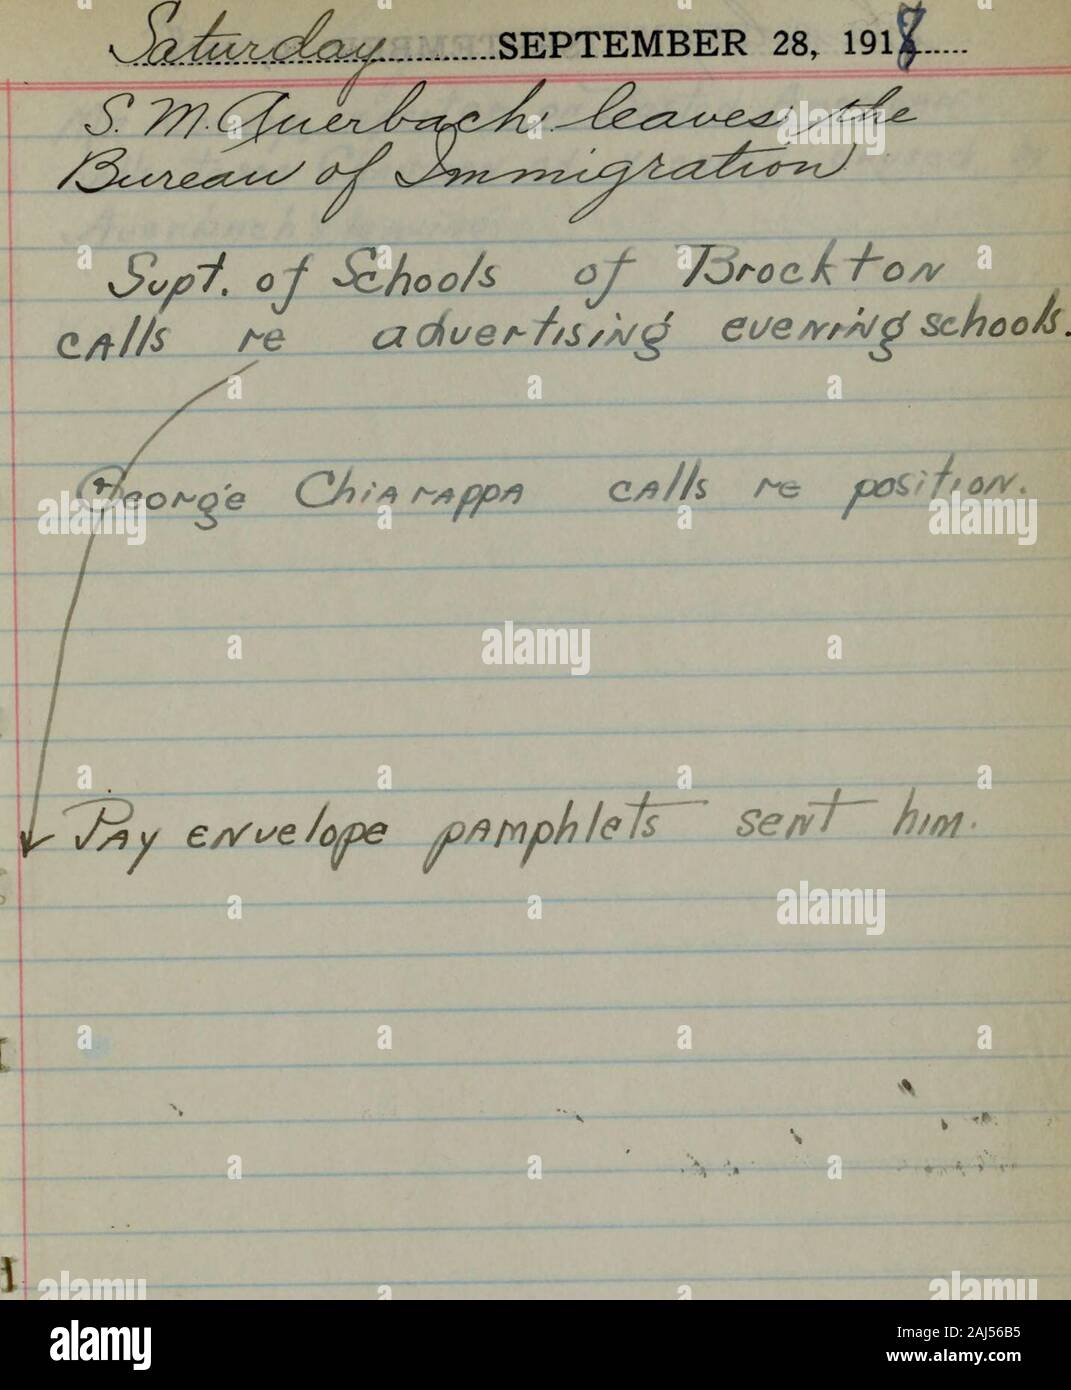 Saturday SEPTEMBER 28, 1918
S. M. Auerbach leaves the
Bureau of Immigration
Supt. of Schools of Brockton
calls re advertising evening schools.
George Chiarappa calls re position.
Pay envelope pamphlets sent him.
alamy
Image ID: 2AJ56B5
www.alamy.com